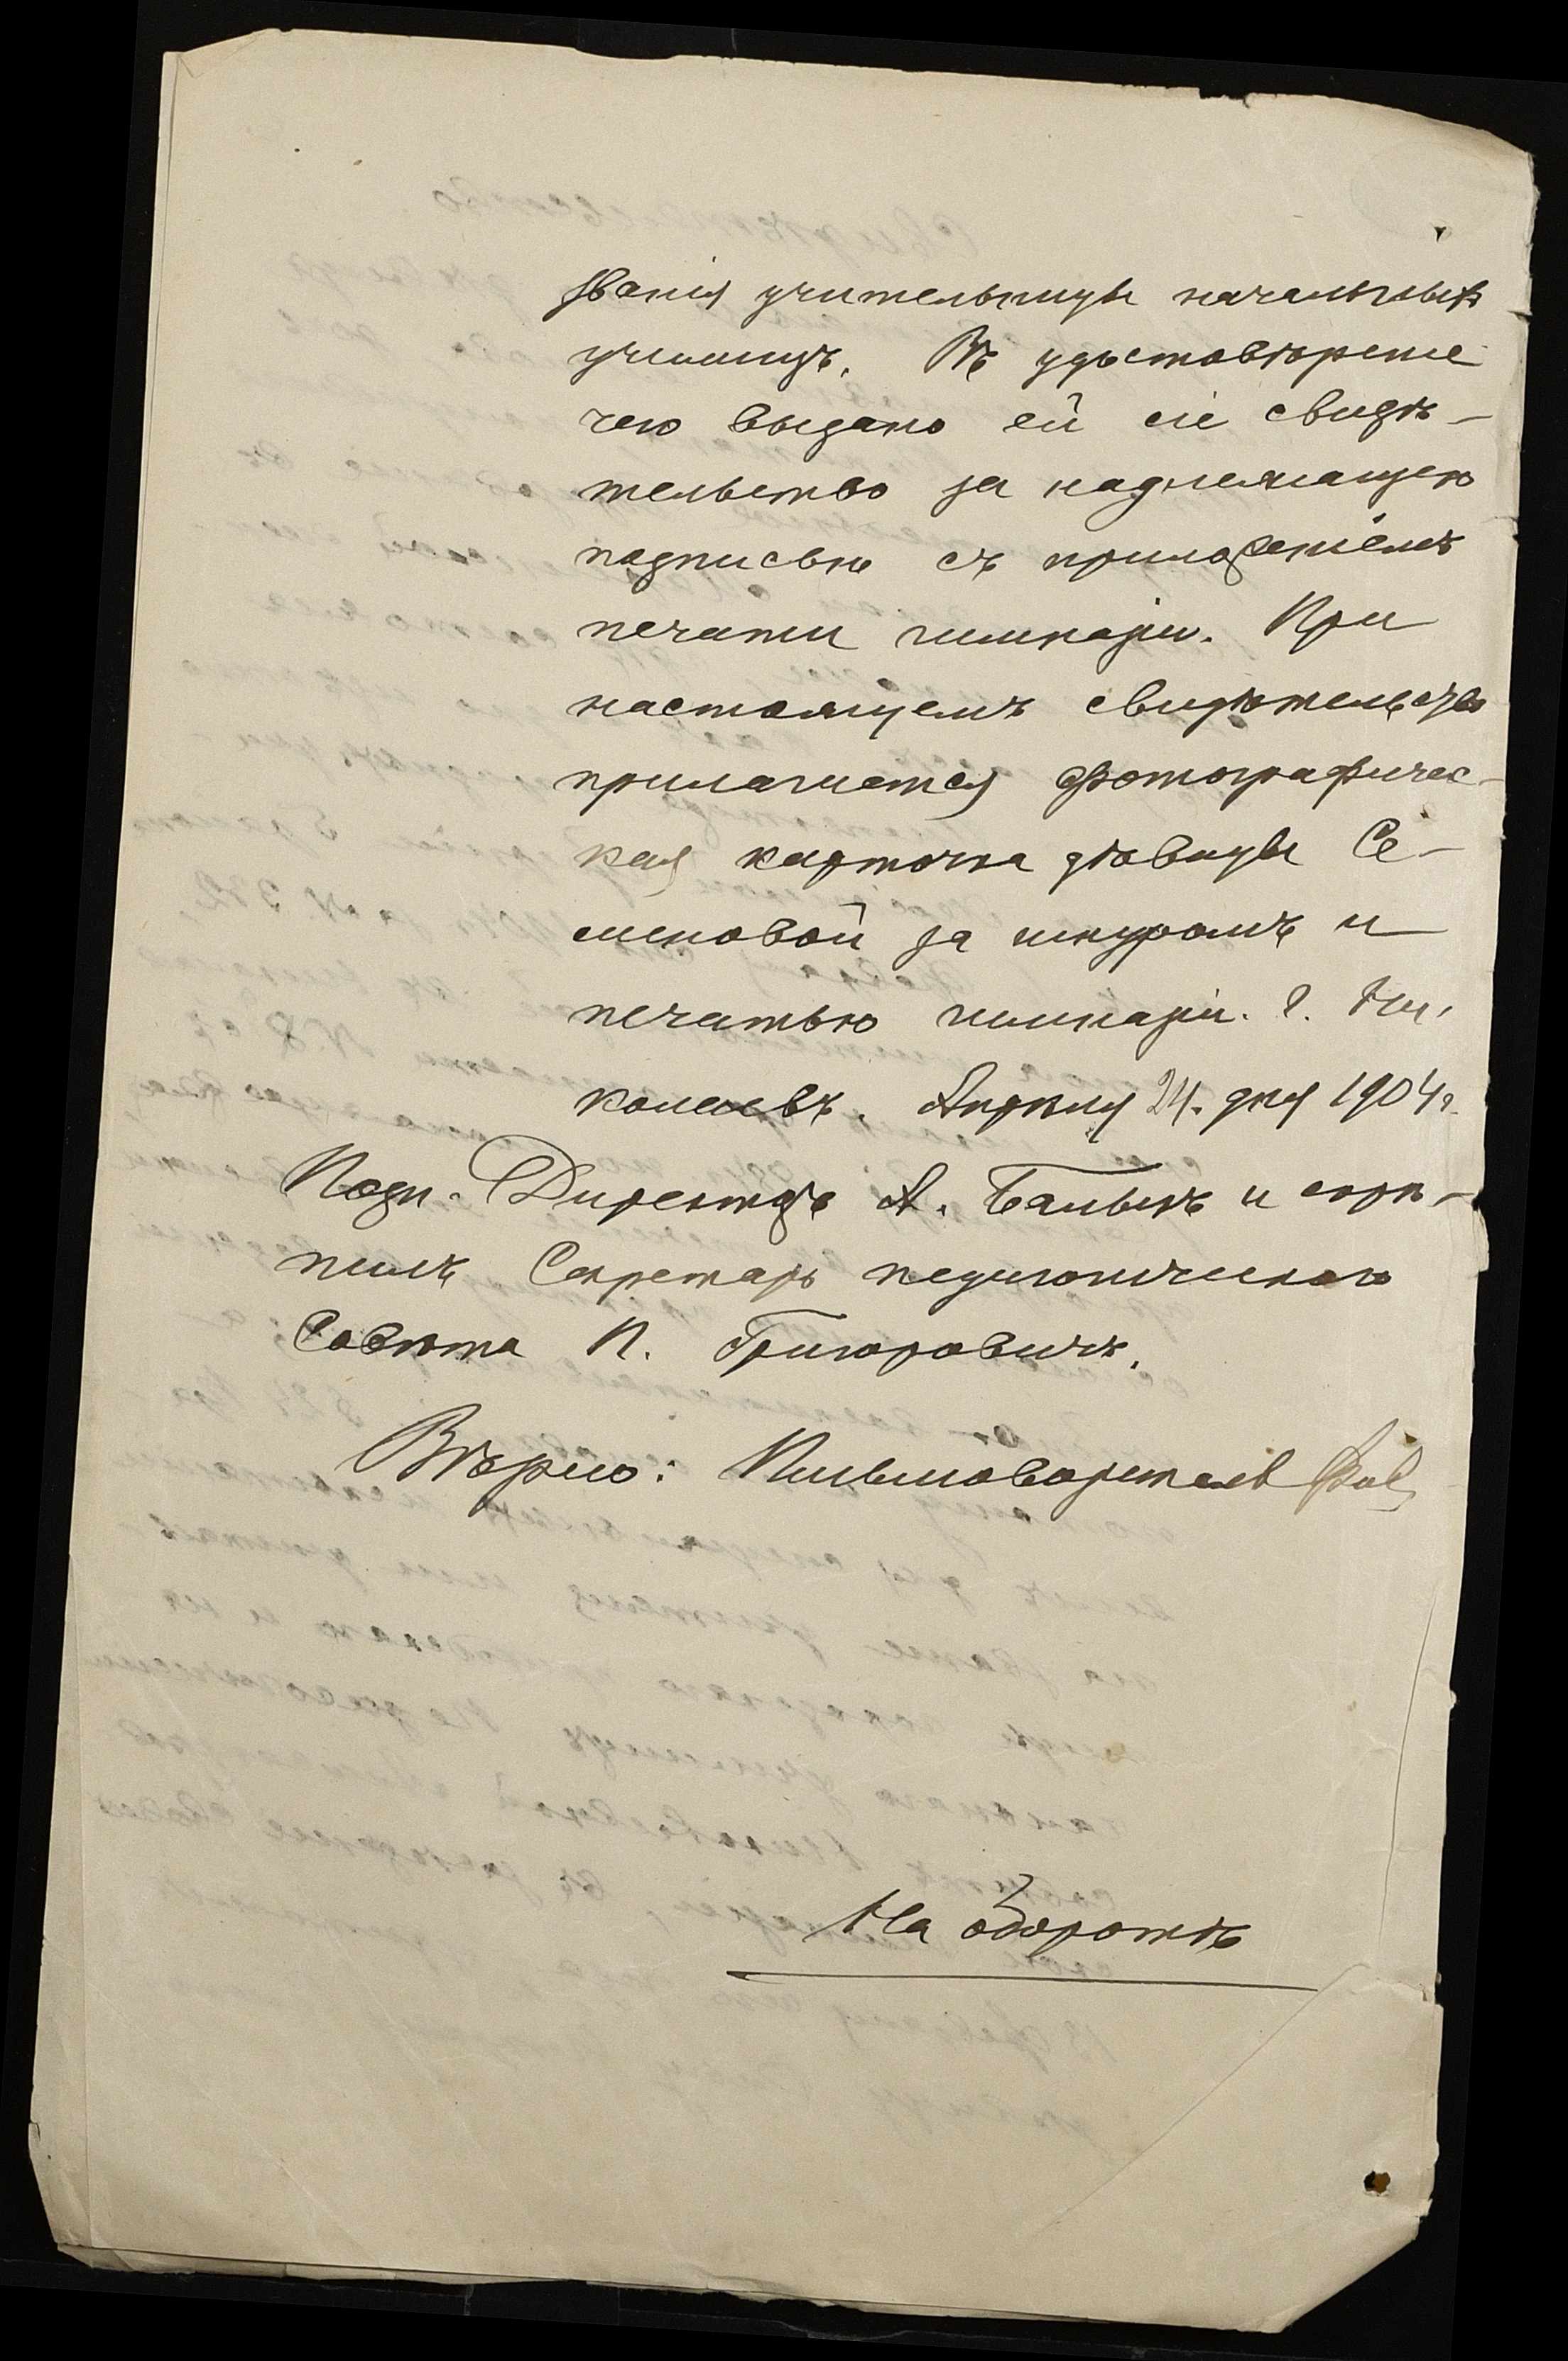 званія учительницы начальныхъ
училищъ. Въ удостовѣреніе
чего выдано ей сіе свидѣ-
тельство за надлежащею
подписью съ приложеніемъ
печати гимназіи. При
настоящемъ свидѣтельствѣ
прилагается фотографичес-
кая карточка дѣвицы Се-
меновой за шнуромъ и
печатью гимназіи. Г. Ни-
колаевъ. Апрѣля 24. дня 1904 г.
Подп. Директоръ А. Балыкъ и скрѣ-
пилъ Секретарь педагогическаго
Совѣта П. Григоровичъ.
Вѣрно: Письмоводитель
На оборотѣ